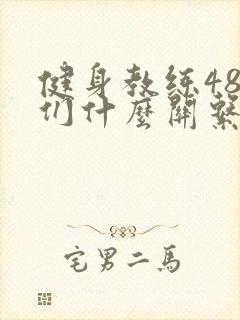 健身教练48
们什麼關繫
宅男二馬